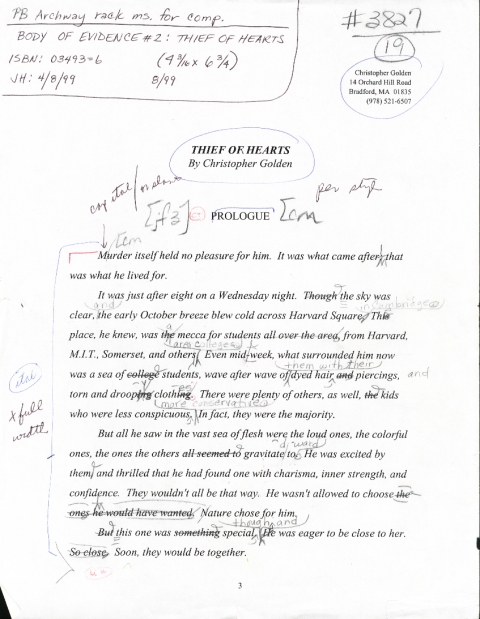 PB Archway rack ms. for comp.
BODY OF EVIDENCE #2: THIEF OF HEARTS
ISBN: 03493=6 (4 3/16 x 6 3/4)
JH: 4/8/99 8/99
#3827
19
Christopher Golden
14 Orchard Hill Road
Bradford, MA 01835
(978) 521-6507
THIEF OF HEARTS
By Christopher Golden
per style
PROLOGUE
Murder itself held no pleasure for him. It was what came after, that
was what he lived for.
It was just after eight on a Wednesday night. Though the sky was
and in Cambridge
clear, the early October breeze blew cold across Harvard Square. This
a
place, he knew, was the mecca for students all over the area, from Harvard,
area colleges
M.I.T., Somerset, and others. Even mid-week, what surrounded him now
them with their
was a sea of college students, wave after wave of dyed hair and piercings, and
torn and drooping clothing. There were plenty of others, as well, the kids
more conservative
who were less conspicuous. In fact, they were the majority.
But all he saw in the vast sea of flesh were the loud ones, the colorful
ones, the ones the others all seemed to gravitate to. He was excited by
them, and thrilled that he had found one with charisma, inner strength, and
confidence. They wouldn't all be that way. He wasn't allowed to choose the
ones he would have wanted. Nature chose for him.
though, and
But this one was something special. He was eager to be close to her.
So close. Soon, they would be together.
x full
width
3